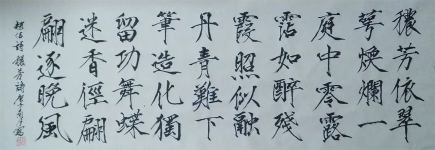 穠芳依翠
萼煥爛一
庭中零露
霑如醉殘
霞照似融
丹青難下
筆造化獨
留功舞蝶
迷香徑翩
翩逐晚風
趙佶詩穠芳詩